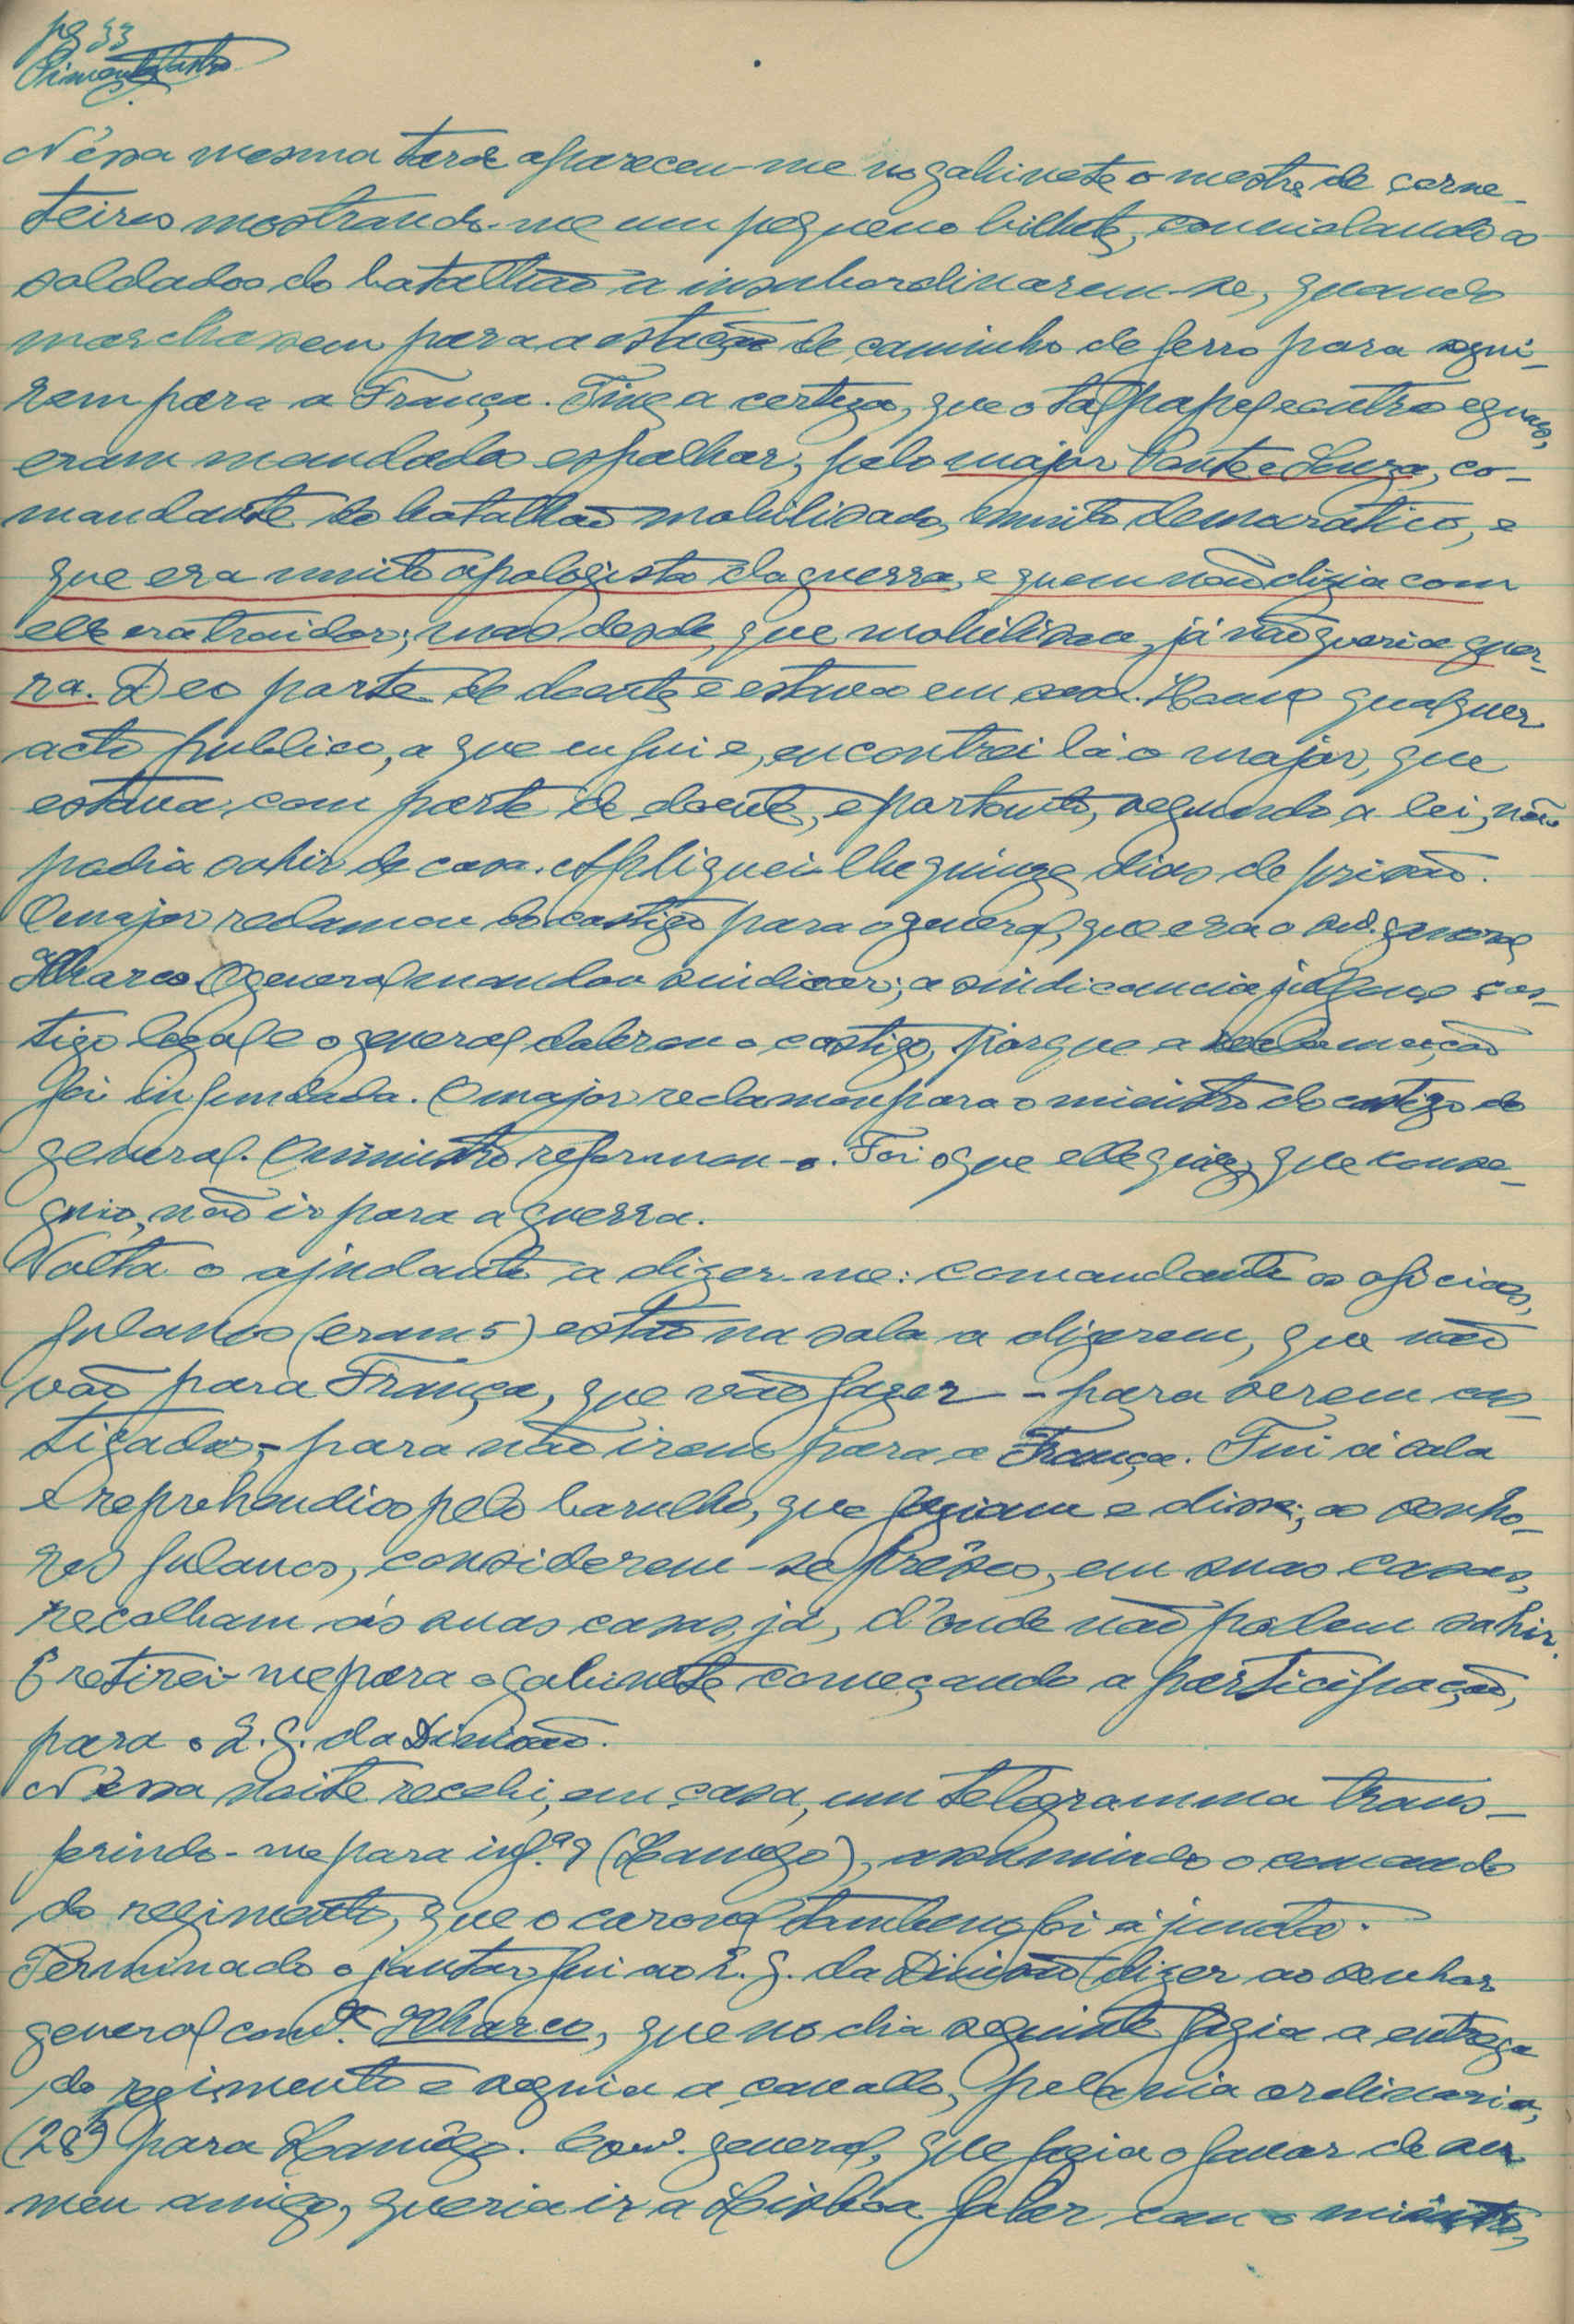 pg 33
Pimenta Castro
N'éssa mesma tarde apareceu-me no gabinete o mestre de corne-
teiros mostrando-me um pequeno bilhete, convidando os
soldados do batalhão a insubordinarem-se, quando
marchassem para a estação de caminho de ferro para segui-
rem para a França. Tive a certeza, que o tal papel e outros eguaes,
eram mandados espalhar, pelo major Ponte e Souza, co-
mandante do batalhão mobilisado, muito democratico, e
que era muito apologista da guerra, e quem não dizia com
elle era traidor; mas desde, que mobilisou, já não queria guer-
ra. Deo parte de doente e estava em casa. Houve qualquer
acto publico, a que eu fui e, encontrei lá o major, que
estava com parte de doente, e portanto, segundo a lei, não
podia sahir de casa. Appliquei-lhe quinze dias de prisão.
O major reclamou do castigo para o general, que era o snr. general
Ilharco. O general mandou sindicar; a sindicancia julgou o cas-
tigo legal e o general dobrou o castigo, porque a reclamação
foi infundada. O major reclamou para o ministro do castigo do
general. O ministro reformou-o. Foi o que elle quiz, que conse-
guio, não ir para a guerra.
Volta o ajudante a dizer-me: comandante os oficiaes,
fulanos (eram 5) estão na sala a dizerem, que não
vão para França, que vão fazer - para serem cas-
tigados, - para não irem para a França. Fui á sala
e reprehendi-os pelo barulho, que faziam e disse; os senho-
res fulanos, considerem-se prêsos, em suas casas,
recolham ás suas casas, já, d'onde não podem sahir.
E retirei-me para o gabinete começando a participação,
para o Q. G. da Divisão.
N'éssa noite recebi, em casa, um telegramma trans-
ferindo-me para inf.ª 9 (Lamego), assumindo o comando
do regimento, que o coronel tambem foi á junta.
Terminado o jantar fui ao Q. G. da Divisão dizer ao senhor
general com.te Ilharco, que no dia seguinte fazia a entrega
do regimento e seguia a cavallo, pela via ordinaria,
(28) para Lamêgo. O snr. general, que fazia o favor de ser
meu amigo, queria ir a Lisbôa falar com o ministro,